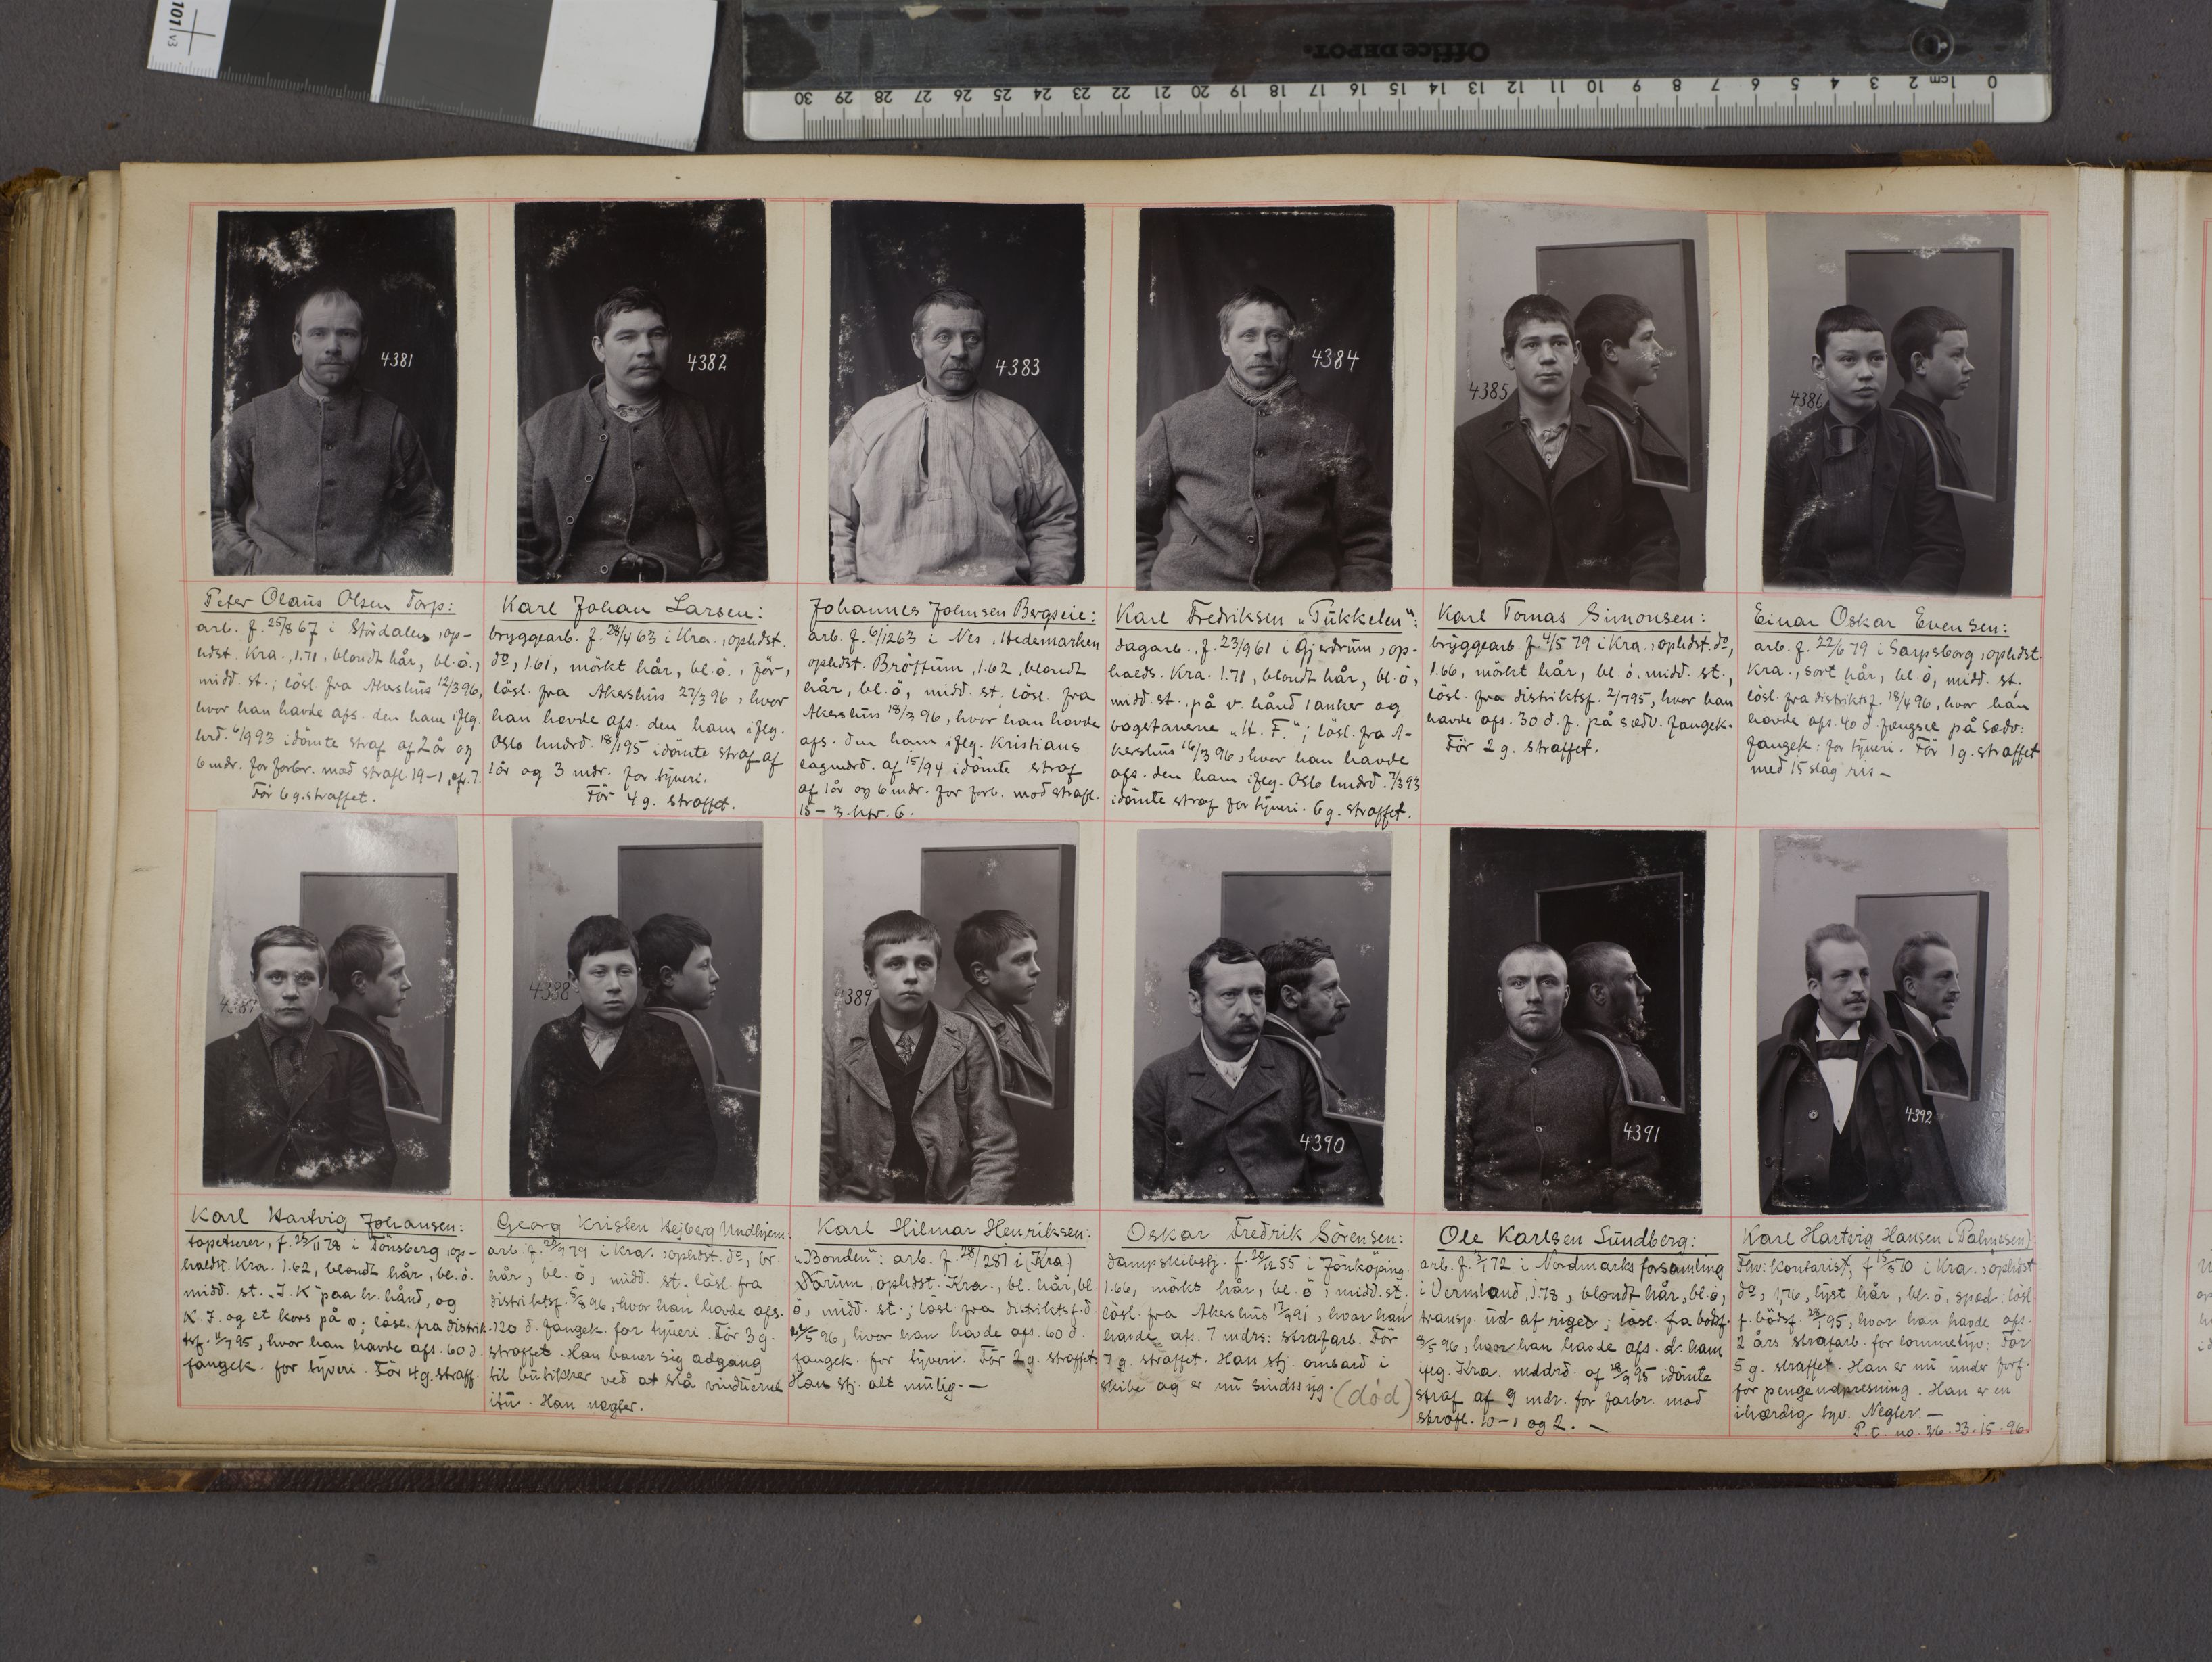 101 v3
Office DEPOT.
0 1cm 2 3 4 5 6 7 8 9 10 11 12 13 14 15 16 17 18 19 20 21 22 23 24 25 26 27 28 29 30
4381
4382
4383
4384
4385
4386
Peter Olaus Olsen Torp:
arb. f. 25/8 67 i Stördalen, op-
hdst. Kra., 1.71, blondt hår, bl. ö.,
midd. st.; lösl. fra Akershus 12/3 96,
hvor han havde afs. den ham iflg.
hrd. 6/9 93 idömte straf af 2 år og
6 mdr. for forbr. mod strafl. 19-1, cfr. 7.
För 6 g. straffet.
Karl Johan Larsen:
bryggearb. f. 28/4 63 i Kra., ophdst.
do, 1.61, mörkt hår, bl. ö., för,
lösl. fra Akershus 27/3 96, hvor
han havde afs. den ham iflg.
Oslo lmdrd. 18/1 95 idömte straf af
1 år og 3 mdr. for tyveri.
För 4 g. straffet.
Johannes Johnsen Bergseie:
arb. f. 6/12 63 i Nes, Hedemarken
ophdst. Bröttum, 1.62, blondt
hår, bl. ö, midd. st., lösl. fra
Akershus 18/3 96, hvor han havde
afs. den ham iflg. Kristians
lagmdrd. af 15/94 idömte straf
af 1 år og 6 mdr. for forb. mod strafl.
15-3. hfr. 6.
Karl Fredriksen "Pukkelen":
dagarb., f. 23/9 61 i Gjerdrum, op-
holds. Kra. 1.71, blondt hår, bl. ö,
midd. st., på v. hånd 1 anker og
bogstaverne "K. F."; lösl. fra A-
kershus 16/3 96, hvor han havde
afs. den ham iflg. Oslo lmdrd. 7/3 93
idömte straf for tyveri. 6 g. straffet.
Karl Tomas Simonsen:
bryggearb. f. 4/5 79 i Kra., ophdst. do,
1.66, mörkt hår, bl. ö. midd. st.,
lösl. fra distriktsf. 2/7 95, hvor han
havde afs. 30 d. f. på sædv. fangek.
För 2 g. straffet.
Einar Oskar Evensen:
arb. f. 22/6 79 i Sarpsborg, ophdst.
Kra., sort hår, bl. ö, midd. st.
lösl. fra distriktsf. 18/4 96, hvor han
havde afs. 40 d. fængsel på sædv:
fangek: for tyveri. För 1 g. straffet
med 15 slag ris -
4387
4388
4389
4390
4391
4392
Karl Hartvig Johansen:
tapetserer, f. 25/11 78 i Tönsberg, op-
holdst. Kra. 1.62, blondt hår, bl. ö.
midd. st. "J. K" paa h. hånd, og
K. J. og et kors på v; lösl. fra distrik-
tsf. 11/7 95, hvor han havde afs. 60 d.
fangek. for tyveri. För 4 g. straff.
Georg Kristen Hejberg Undhjem:
arb. f. 79 i Kra., ophdst. do, br.
hår, bl. ö, midd. st. lösl. fra
distriktsf. 5/3 96, hvor han havde afs.
120 d. fangek. for tyveri. För 3 g.
straffet. Han baner sig adgang
til butikker ved at slå vinduerne
itu. Han negter.
Karl Hilmar Henriksen:
"Bonden": arb. f. 28/2 81 i (Kra)
ophdst. Kra., bl. hår, bl.
ö, midd. st.; lösl. fra distriktsf. d.
96, hvor han havde afs. 60 d.
fangek. for tyveri. För 2 g. straffet
Han stj. alt mulig. -
Oskar Fredrik Sörensen:
dampskibstj. f. 20/12 55 i Jönköping.
1.66, mörkt hår, bl. ö, midd. st.
lösl. fra Akershus 91, hvor han
havde afs. 7 mdrs: strafarb. För
7 g. straffet. Han stj. ombord i
skibe og er nu sindssyg. (död)
Ole Karlsen Sundberg:
arb. f. 72 i Nordmarks forsamling
i Vermland, 1.78, blondt hår, bl. ö,
transp. ud af riget; lösl. fra bodsf.
8/5 96, hvor han havde afs. d. ham
iflg. Kra. mddrd. af 28/9 95 idömte
straf af 9 mdr. for forbr. mod
strafl. 10-1 og 2. -
Karl Hartvig Hansen (Palmesen)
Fhv: kontorist, f. 15/3 70 i Kra., ophdst
do, 1,76, lyst hår, bl. ö. spæd; lösl.
f. bödsf. 95, hvor han havde afs.
2 års strafarb. for lommetyv: För
5 g. straffet. Han er nu under forf.
for pengeudpresning. Han er en
ihærdig tyv. Negter. -
P.t. no. 26. B. 15. 96.